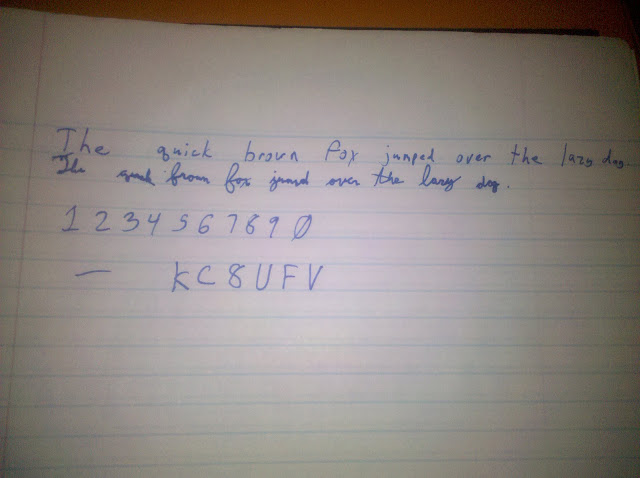 The quick brown fox jumped over the lazy dog
The quick brown fox jumped over the lazy dog.
1 2 3 4 5 6 7 8 9 0
— KC8UFV